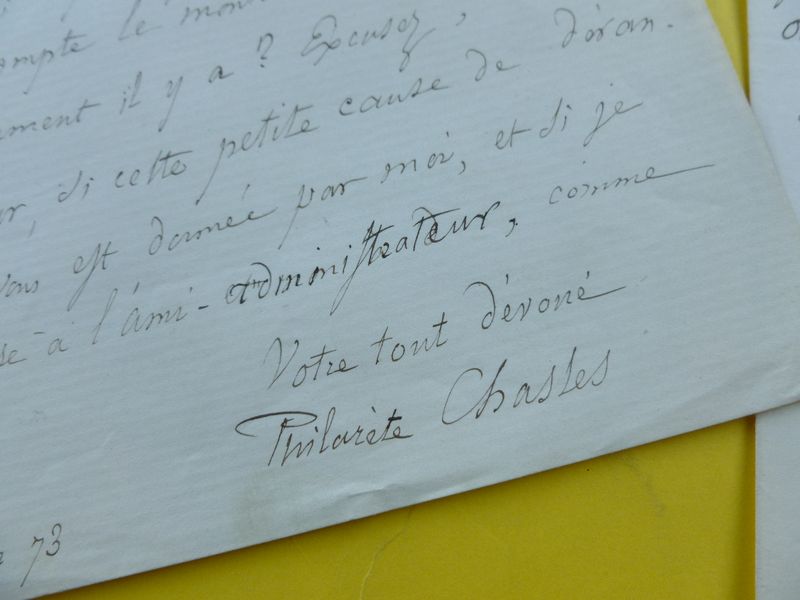 le mon
il y a ? Excusez,
si cette petite cause de déran-
vous est donnée par moi, et si je
à l'ami-administrateur, comme
Votre tout dévoué
Philarète Chasles
73